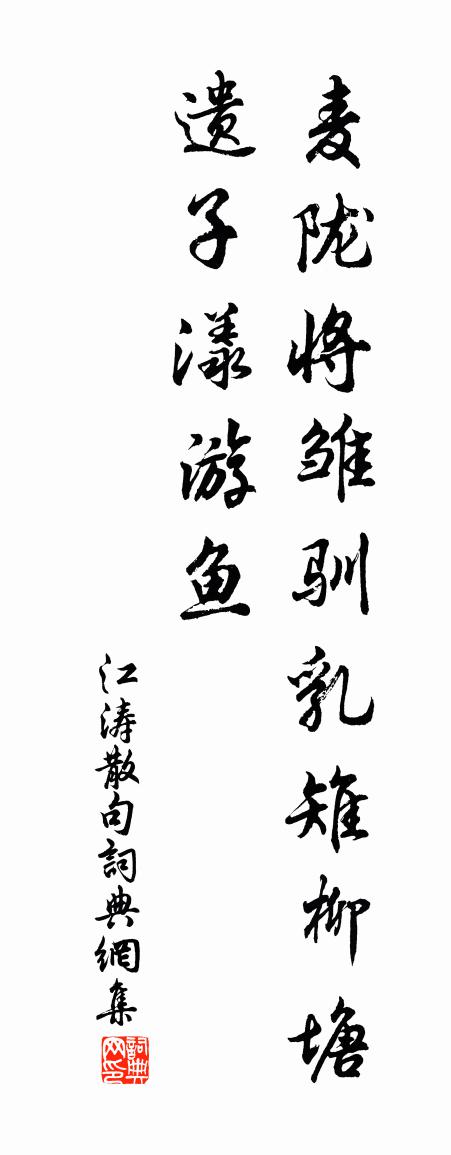 麦陇将雏驯乳雉柳塘
遗子漾游鱼
江涛散句詞典網集
詞典网印